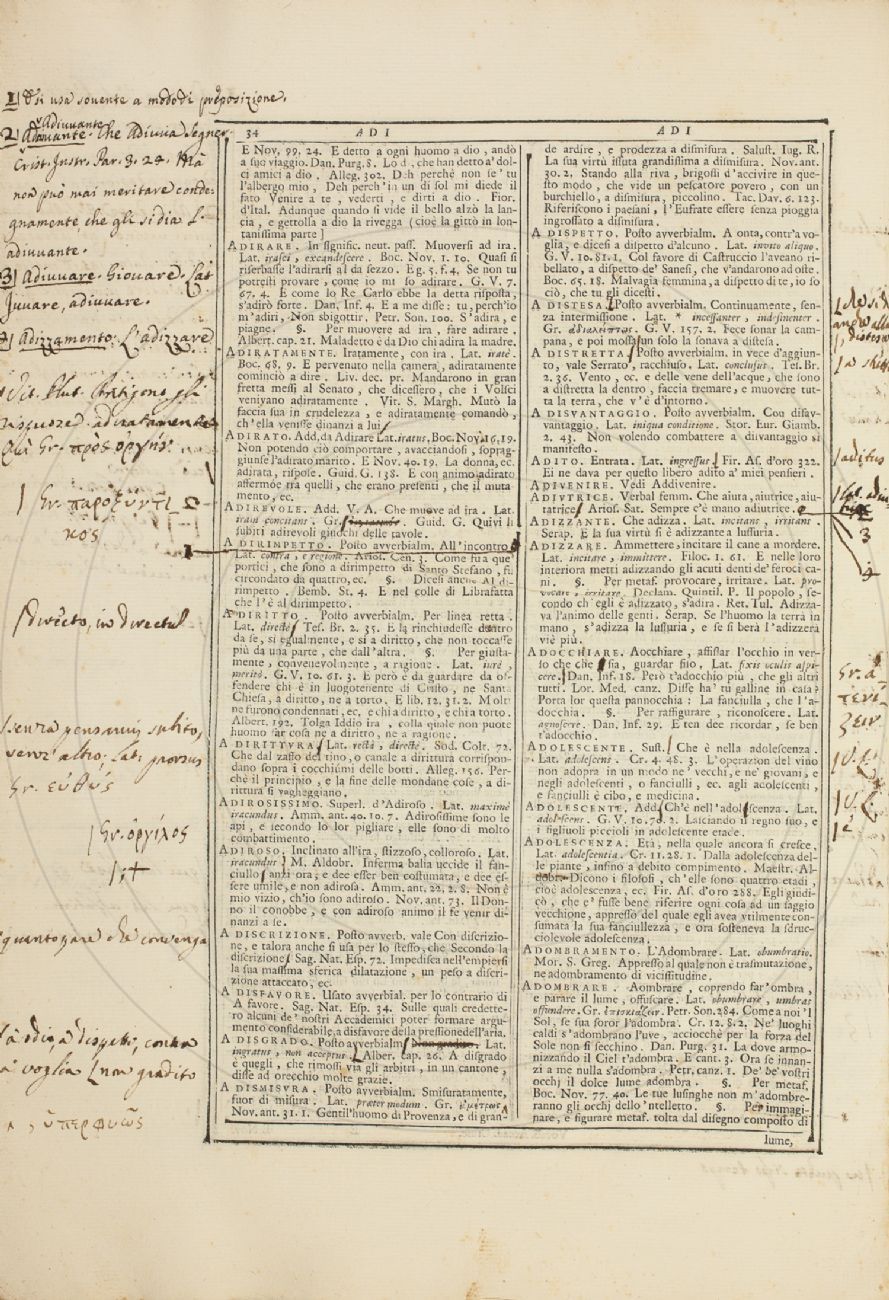 1] Et si usa sovente a modo di preposizione.
Adiuvante
2] Adiuvante. Che Adiuva Segner.
Crist. Instr. Par. 3. 24. Ma
non può mai meritare conde-
gnamente, che gli si dia l'
adiuvante.
3] Adiuvare. Giovare. Lat.
Juvare, adiuvare.
4] Adizzamento. L'adizzare
Vit. Plut.
adiratamente
Gr. πρὸς ὀργήν.
Gr. παροξυντι
κός
2
1
directo, in directum
senza pensarvi, subito,
senz' altro, Lat. prorsus
Gr. εὐθύς
Gr. ὀργίλος
quanto pare che convenga
a odio, a dispetto, contra
a voglia non gradito
ὑπερφυῶς
34 ADI
E Nov. 99. 24. E detto a ogni huomo a dio, andò
a suo viaggio. Dan. Purg. 8. Lo dì, che han detto a' dol-
ci amici a dio. Alleg. 302. Deh perchè non se' tu
l'albergo mio, Deh perch' in un dì sol mi diede il
fato Venire a te, vederti, e dirti a dio. Fior.
d'Ital. Adunque quando si vide il bello alzò la lan-
cia, e gettolla a dio la rivegga (cioè la gittò in lon-
tanissima parte]
ADIRARE. In signific. neut. pass. Muoversi ad ira.
Lat. irasci, excandescere. Boc. Nov. 1. 10. Quasi si
riserbasse l'adirarsi al da sezzo. Eg. 5. f. 4. Se non tu
potresti provare, come io mi so adirare. G. V. 7.
67. 4. E come lo Re Carlo ebbe la detta risposta,
s'adirò forte. Dan. Inf. 4. E a me disse: tu, perch'io
m'adiri, Non sbigottir. Petr. Son. 100. S'adira, e
piagne. §. Per muovere ad ira, fare adirare.
Albert. cap. 21. Maladetto è da Dio chi adira la madre.
ADIRATAMENTE. Iratamente, con ira. Lat. iratè.
Boc. 68. 9. E pervenuto nella camera, adiratamente
cominciò a dire. Liv. dec. pr. Mandarono in gran
fretta messi al Senato, che dicessero, che i Volsci
veniyano adiratamente. Vit. S. Margh. Mutò la
faccia sua in crudelezza, e adiratamente comandò,
ch'ella venisse dinanzi a lui
ADIRATO. Add. da Adirare Lat. iratus, Boc. Nov. 16. 19.
Non potendo ciò comportare, avacciandosi, soprag-
giunse l'adirato marito. E Nov. 40. 19. La donna, ec.
adirata, rispose. Guid. G. 138. E con animo adirato
affermoe tra quelli, che erano presenti, che il muta-
mento, ec.
ADIREVOLE. Add. V. A. Che muove ad ira. Lat.
iram concitans. Gr. Guid. G. Quivi li
subiti adirevoli giuochi delle tavole.
A DIRIMPETTO. Posto avverbialm. All'incontro
Lat. contra, e regione. Ariol. Cen. 3. Come fu a que'
portici, che sono a dirimpetto di Santo Stefano, fu
circondato da quattro, ec. §. Dicesi ancora Al di-
rimpetto. Bemb. St. 4. E nel colle di Librafatta
che l'è al dirimpetto.
A DIRITTO. Posto avverbialm. Per linea retta.
Lat. directè Tes. Br. 2. 35. E la rinchiudesse dentro
da se, sì egualmente, e sì a diritto, che non toccasse
più da una parte, che dall'altra. §. Per giusta-
mente, convenevolmente, a ragione. Lat. iurè,
meritò. G. V. 10. 61. 3. E però è da guardare da of-
fendere chi è in luogotenente di Cristo, ne Santa
Chiesa, a diritto, ne a torto. E lib. 12. 31. 2. Molti
ne furono condennati, ec. e chi a diritto, e chi a torto.
Albert. 192. Tolga Iddio ira, colla quale non puote
huomo far cosa ne a diritto, ne a ragione.
A DIRITTVRA Lat. rectà, directè. Sod. Colt. 72.
Che dal zaffo del tino, o canale a dirittura corrispon-
dano sopra i cocchiumi delle botti. Alleg. 156. Per-
chè il principio, e la fine delle mondane cose, a di-
rittura si vagheggiano.
ADIROSISSIMO. Superl. d'Adiroso. Lat. maximè
iracundus. Amm. ant. 40. 10. 7. Adirosissime sono le
api, e secondo lo lor pigliare, elle sono di molto
combattimento.
ADIROSO. Inclinato all'ira, stizzoso, colloroso. Lat.
iracundus M. Aldobr. Inferma balia uccide il fan-
ciullo anzi ora; e dee esser ben costumata, e dee es-
sere umile, e non adirosa. Amm. ant. 22. 2. 8. Non è
mio vizio, ch'io sono adiroso. Nov. ant. 73. Il Don-
no il conobbe, e con adiroso animo il fe venir di-
nanzi a se.
A DISCRIZIONE. Posto avverb. vale Con discrizio-
ne, e talora anche si usa per lo stesso, che Secondo la
discrizione Sag. Nat. Esp. 72. Impedisca nell'empiersi
la sua massima sferica dilatazione, un peso a discri-
zione attaccato, ec.
A DISFAVORE. Usato avverbial. per lo contrario di
A favore. Sag. Nat. Esp. 34. Sulle quali credette-
ro alcuni de' nostri Accademici poter formare argu-
mento considerabile, a disfavore della pressione dell'aria.
A DISGRADO. Posto avverbialm Non gradito. Lat.
ingratus, non acceptus Alber. cap. 26. A disgrado
è quegli, che rimossi via gli arbitri, in un cantone,
disse ad orecchio molte grazie.
A DISMISVRA. Posto avverbialm. Smisuratamente,
fuor di misura. Lat. præter modum. Gr. ἀμέτρως
Nov. ant. 31. 1. Gentil'huomo di Provenza, e di gran-
ADI
de ardire, e prodezza a dismisura. Salust. Iug. R.
La sua virtù issuta grandissima a dismisura. Nov. ant.
30. 2. Stando alla riva, brigossi d'accivire in que-
sto modo, che vide un pescatore povero, con un
burchiello, a dismisura, piccolino. Tac. Dav. 6. 123.
Riferiscono i paesani, l'Eufrate essere senza pioggia
ingrossato a dismisura.
A DISPETTO. Posto avverbialm. A onta, contr'a vo-
glia, e dicesi a dispetto d'alcuno. Lat. invito aliquo.
G. V. 10. 81. 1. Col favore di Castruccio l'aveano ri-
bellato, a dispetto de' Sanesi, che v'andarono ad oste.
Boc. 65. 18. Malvagia femmina, a dispetto di te, io so
ciò, che tu gli dicesti.
A DISTESA Posto avverbialm. Continuamente, sen-
za intermissione. Lat. * incessanter, indesinenter.
Gr. ἀδιαλείπτως. G. V. 157. 2. Fece sonar la cam-
pana, e poi mossa un solo la sonava a distesa.
A DISTRETTA Posto avverbialm. in vece d'aggiun-
to, vale Serrato, racchiuso. Lat. conclusus. Tes. Br.
2. 36. Vento, ec. e delle vene dell'acqua, che sono
a distretta la dentro, faccia tremare, e muovere tut-
ta la terra, che v'è d'intorno.
A DISVANTAGGIO. Posto avverbialm. Con disav-
vantaggio. Lat. iniqua conditione. Stor. Eur. Giamb.
2. 43. Non volendo combattere a disvantaggio sì
manifesto.
ADITO. Entrata. Lat. ingressus Fir. As. d'oro 322.
Ei ne dava per questo libero adito a' miei pensieri.
ADIVENIRE. Vedi Addivenire.
ADIVTRICE. Verbal femm. Che aiuta, aiutrice, aiu-
tatrice Ariof. Sat. Sempre c'è mano adiutrice.
ADIZZANTE. Che adizza. Lat. incitans, irritans.
Serap. E la sua virtù si è adizzante a lussuria.
ADIZZARE. Ammettere, incitare il cane a mordere.
Lat. incitare, immittere. Filoc. 1. 61. E nelle loro
interiora metti adizzando gli acuti denti de' feroci ca-
ni. §. Per metaf. provocare, irritare. Lat. pro-
vocare, irritare. Declam. Quintil. P. Il popolo, se-
condo ch'egli è adizzato, s'adira. Ret. Tul. Adizza-
va l'animo delle genti. Serap. Se l'huomo la terrà in
mano, s'adizza la lussuria, e se si berà l'adizzerà
vie più.
ADOCCHIARE. Aocchiare, affissar l'occhio in ver-
so che che sia, guardar fiso, Lat. fixis oculis aspi-
cere. Dan. Inf. 18. Però t'adocchio più, che gli altri
tutti. Lor. Med. canz. Disse ha' tu galline in casa?
Porta lor questa pannocchia: La fanciulla, che l'a-
docchia. §. Per raffigurare, riconoscere. Lat.
agnoscere. Dan. Inf. 29. E ten dee ricordar, se ben
t'adocchio.
ADOLESCENTE. Sust. Che è nella adolescenza.
Lat. adolescens. Cr. 4. 48. 3. L'operazion del vino
non adopra in un modo ne' vecchi, e ne' giovani, e
negli adolescenti, o fanciulli, ec. agli adolescenti,
e fanciulli è cibo, e medicina.
ADOLESCENTE. Add. Ch'è nell'adolescenza. Lat.
adolescens. G. V. 10. 70. 2. Lasciando il regno suo, e
i figliuoli piccioli in adolescente etade.
ADOLESCENZA. Età, nella quale ancora si cresce.
Lat. adolescentia. Cr. 11. 28. 1. Dalla adolescenza del-
le piante, infino a debito compimento. Maestr. Al-
dobr. Dicono i filosofi, ch'elle sono quattro etadi,
cioè adolescenza, ec. Fir. As. d'oro 288. Egli giudi-
cò, che e' fusse bene riferire ogni cosa ad un saggio
vecchione, appresso del quale egli avea vtilmente con-
sumata la sua fanciullezza, e ora sosteneva la sdruc-
ciolevole adolescenza.
ADOMBRAMENTO. L'Adombrare. Lat. obumbratio.
Mor. S. Greg. Appresso al quale non è trasmutazione,
ne adombramento di vicissitudine.
ADOMBRARE. Aombrare, coprendo far'ombra,
e parare il lume, offuscare. Lat. obumbrare, umbras
offundere. Gr. ἐπισκιάζειν. Petr. Son. 284. Come a noi 'l
Sol, se sua soror l'adombra. Cr. 12. 8. 2. Ne' luoghi
caldi s'adombrano l'uve, acciocchè per la forza del
Sole non si secchino. Dan. Purg. 31. La dove armo-
nizzando il Ciel t'adombra. E cant. 3. Ora se innan-
zi a me nulla s'adombra. Petr. canz. 1. De' be' vostri
occhj il dolce lume adombra. §. Per metaf.
Boc. Nov. 77. 40. Le tue lusinghe non m'adombre-
ranno gli occhj dello 'ntelletto. §. Per immagi-
nare, e figurare metaf. tolta dal disegno composto di
lume,
aditus
3
4
Gr. ἀ
τενί
ζειν